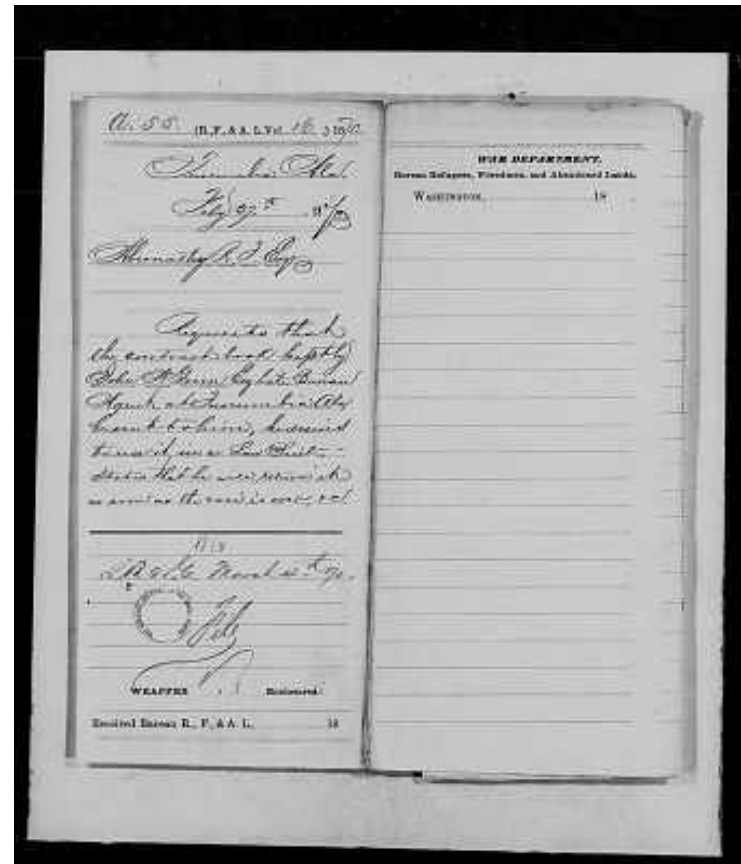 A. 55. (B., F., & A. L.) Vol. 16, 1870.
Tuscumbia Ala
Feby 27th 1870
Abernathy R. T. Esq
Requests that
the contract book kept by
John H. Green Esq late Bureau
Agent at Tuscumbia Ala
be sent to him, he desired
to use it in a Law Suit -
States that he will return it
as soon as the case is over, &c
March 4th 70.
File
WRAPPER Enclosures.
Received Bureau R., F., & A. L. 18
WAR DEPARTMENT,
Bureau Refugees, Freedmen, and Abandoned Lands,
WASHINGTON, 18 .